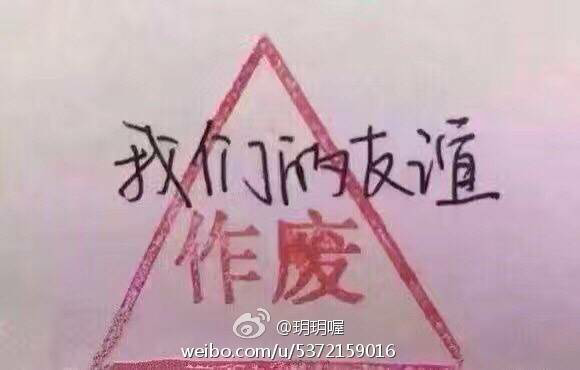 我们的友谊
作废
@玥玥喔
weibo.com/u/5372159016